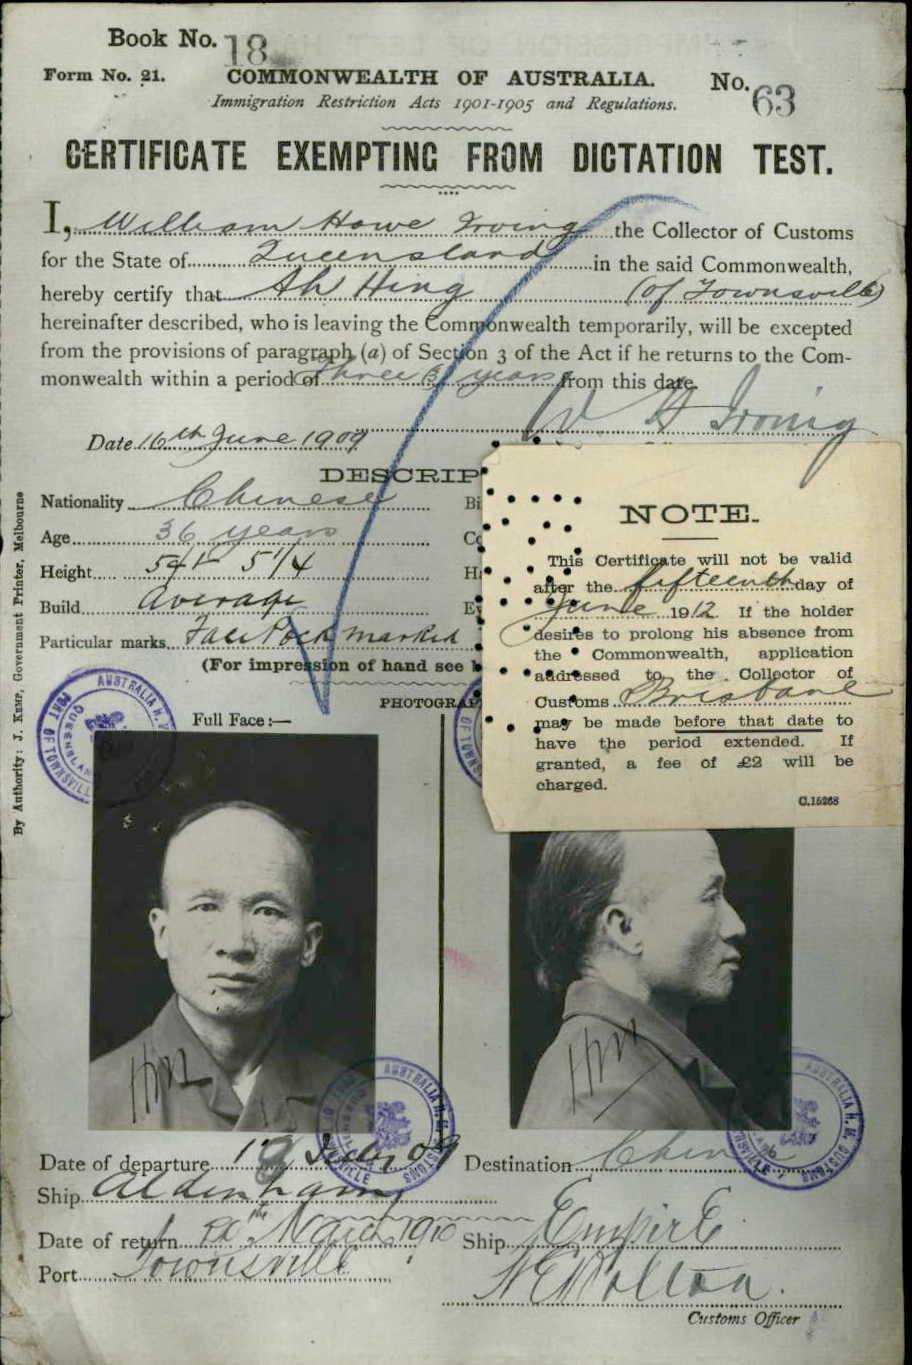 Book No. 18
Form No. 21.
COMMONWEALTH OF AUSTRALIA.
No. 63
Immigration Restriction Acts 1901-1905 and Regulations.
CERTIFICATE EXEMPTING FROM DICTATION TEST.
I, William Howe Irving the Collector of Customs
for the State of Queensland in the said Commonwealth,
hereby certify that Ah Hing (of Townsville)
hereinafter described, who is leaving the Commonwealth temporarily, will be excepted
from the provisions of paragraph (a) of Section 3 of the Act if he returns to the Com-
monwealth within a period of three (3) years from this date.
W H Irving
Date 16th June 1909
DESCRIP
Nationality Chinese
Bi
Age 36 years
Co
Height 5ft 5 1/4
H
Build average
Ey
Particular marks Face Pock marked
(For impression of hand see b
NOTE.
This Certificate will not be valid
after the fifteenth day of
June 1912. If the holder
desires to prolong his absence from
the Commonwealth, application
addressed to the Collector of
Customs Brisbane
may be made before that date to
have the period extended. If
granted, a fee of £2 will be
charged.
C.15268
PHOTOGRAP
Full Face:—
By Authority: J. KEMP, Government Printer, Melbourne
AUSTRALIA H.
PORT OF TOWNSVILL
QUEENSLAN
AUSTRALIA H.M. CUSTOMS
AUSTRALIA H.M. CUSTOMS
Date of departure 09
Destination China
Ship Aldenham
Date of return 1910
Ship Empire
Port Townsville
Customs Officer